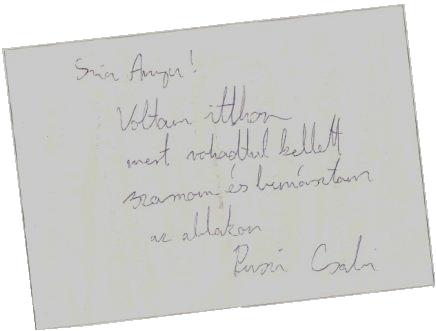 Szia Anyu!
Voltam itthon
mert rohadtul kellett
szarnom és bemásztam
az ablakon
Puszi Csabi